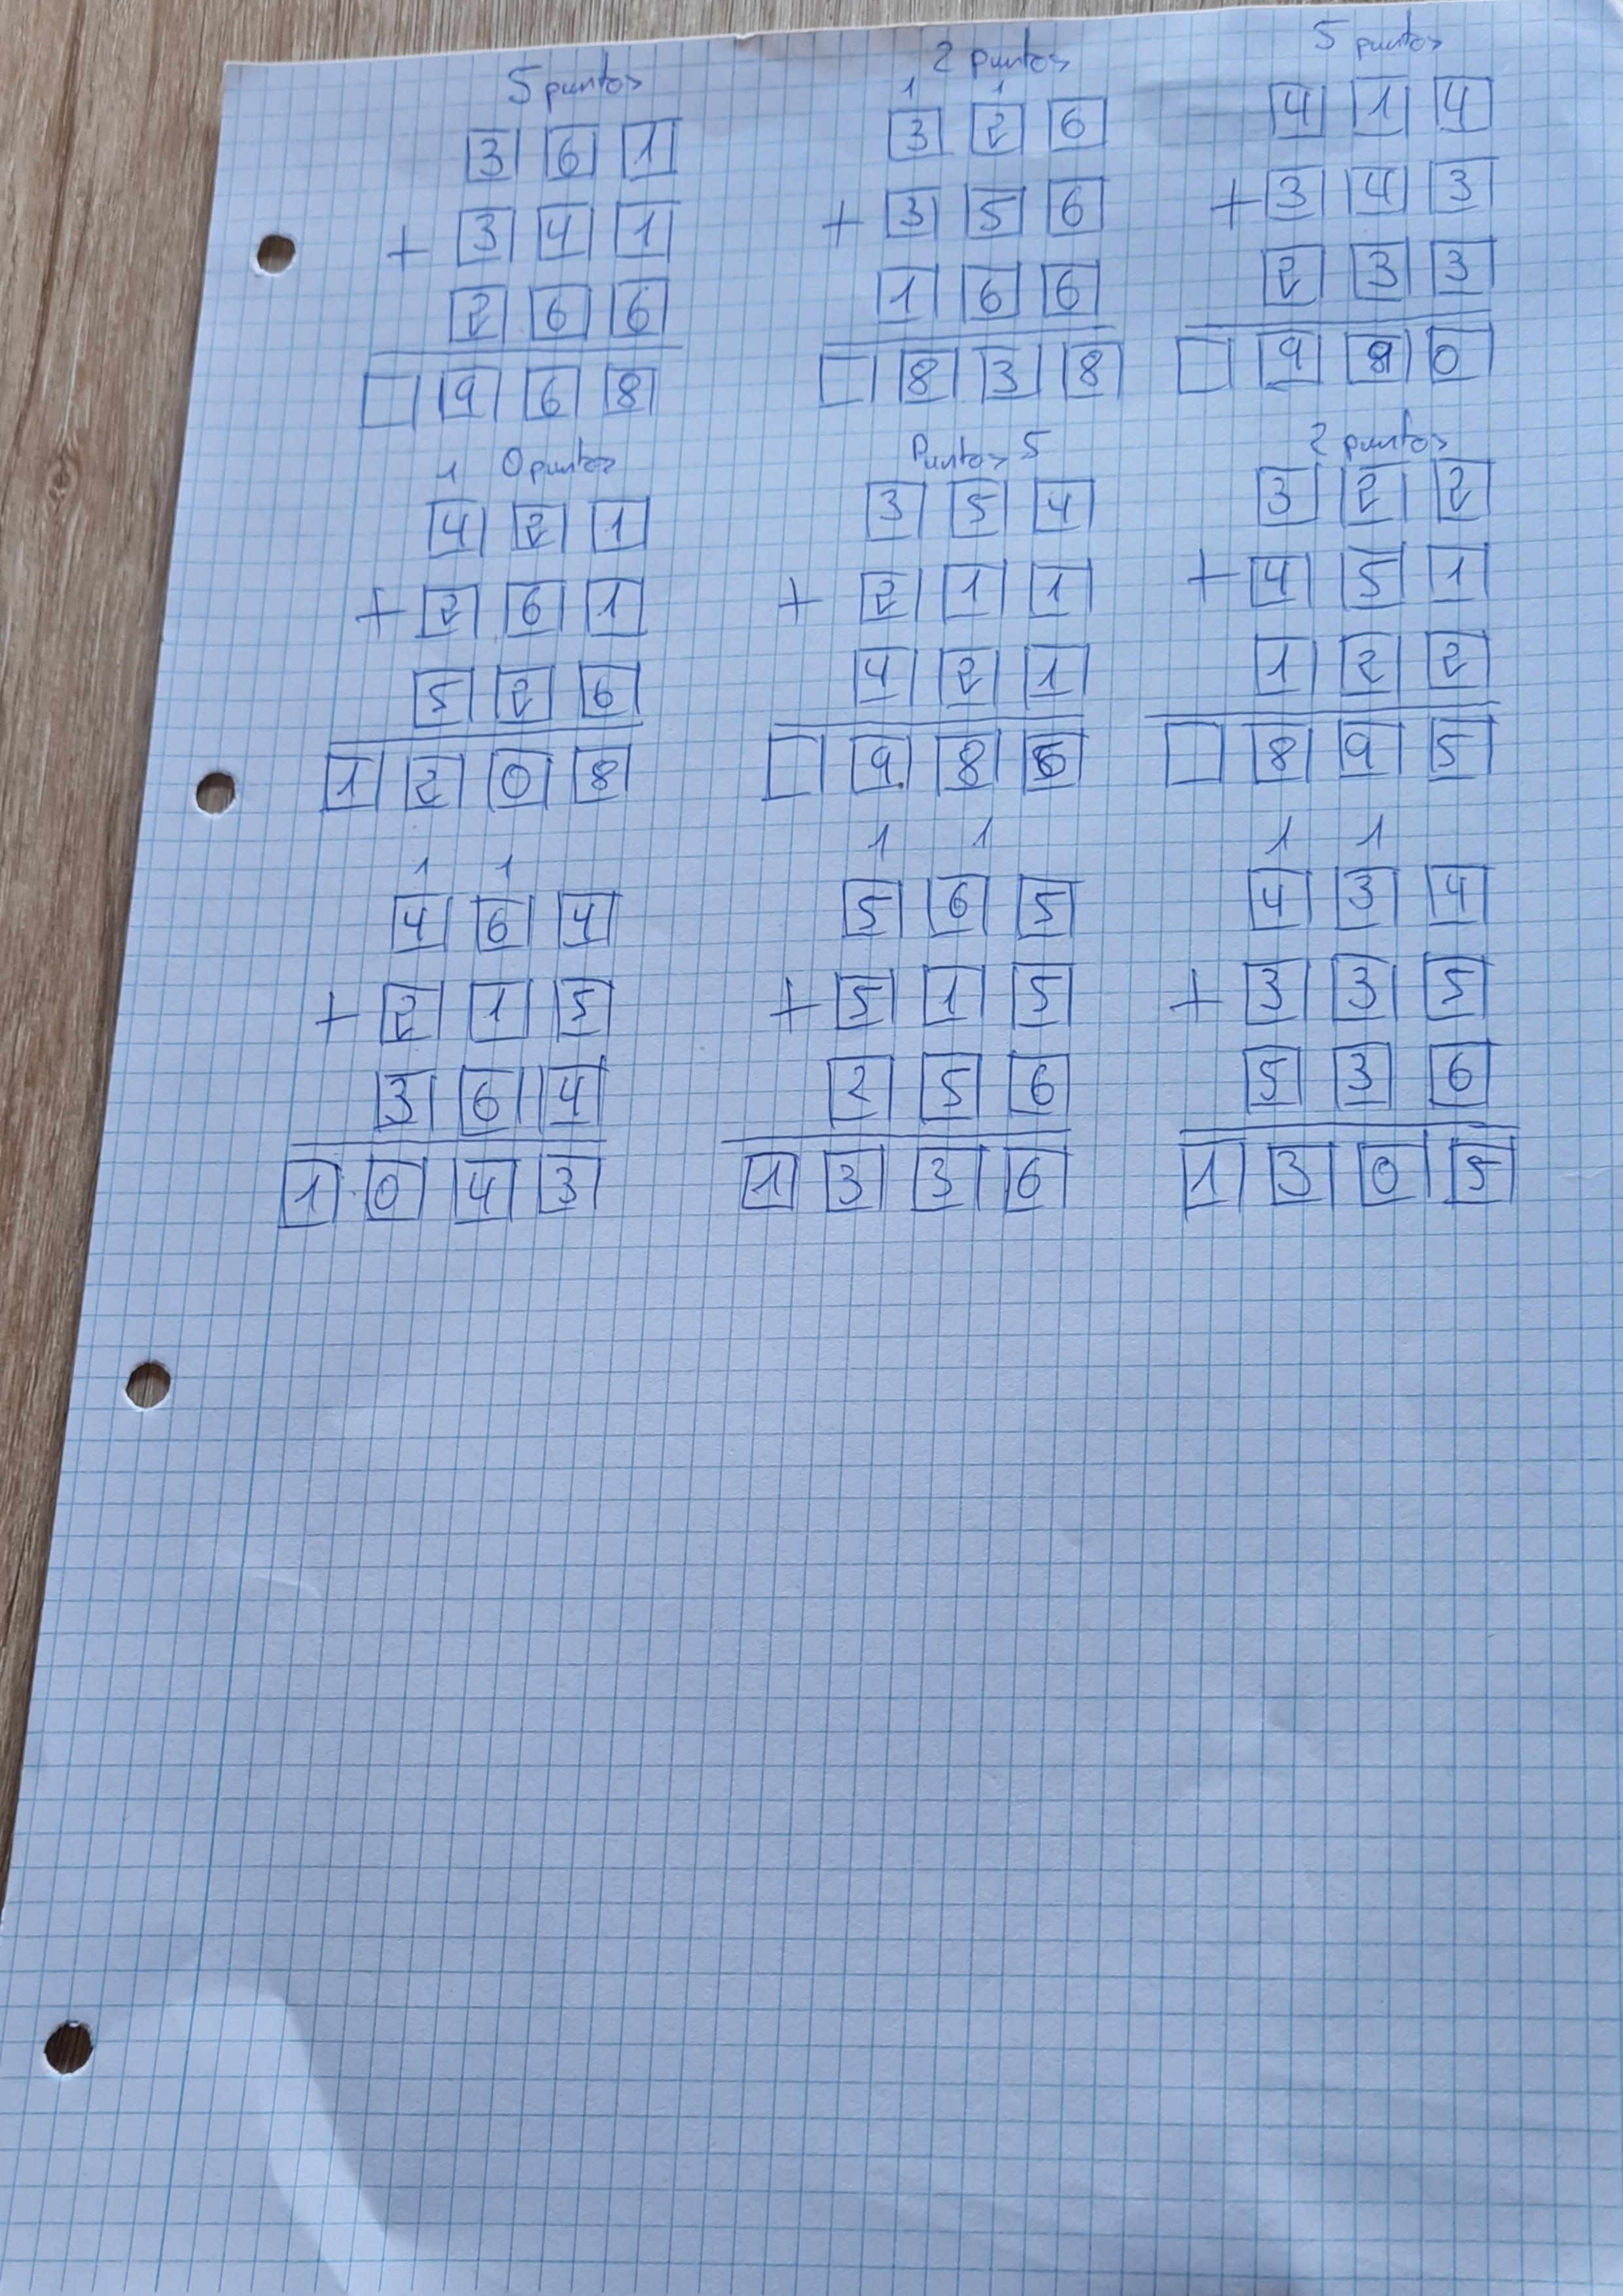 5 puntos
3 6 1
+ 3 4 1
2 6 6
9 6 8
2 puntos
1 1
3 2 6
+ 3 5 6
1 6 6
8 3 8
5 puntos
4 1 4
+ 3 4 3
2 3 3
9 8 0
1 0 puntos
4 2 1
+ 2 6 1
5 2 6
1 2 0 8
Puntos 5
3 5 4
+ 2 1 1
4 2 1
9 8 6
2 puntos
3 2 2
+ 4 5 1
1 2 2
8 9 5
1 1
4 6 4
+ 2 1 5
3 6 4
1 0 4 3
1 1
5 6 5
+ 5 1 5
2 5 6
1 3 3 6
1 1
4 3 4
+ 3 3 5
5 3 6
1 3 0 5